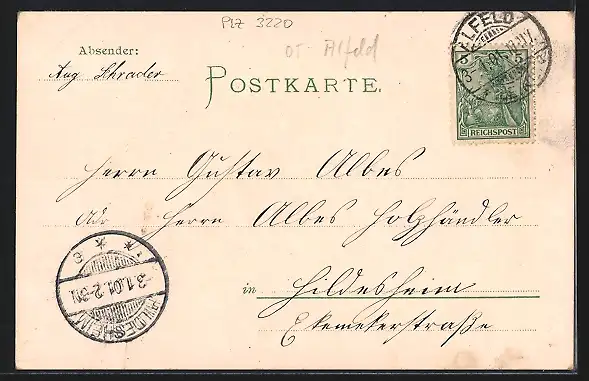 PLZ 3220
OT- Alfeld
Absender:
Aug Schrader
POSTKARTE.
ALFELD
REICHSPOST
Herrn Gustav Albes
Adr Herrn Albes Holzhändler
in Hildesheim
Eckemekerstraße
3.1.01.2-3N
HILDESHEIM